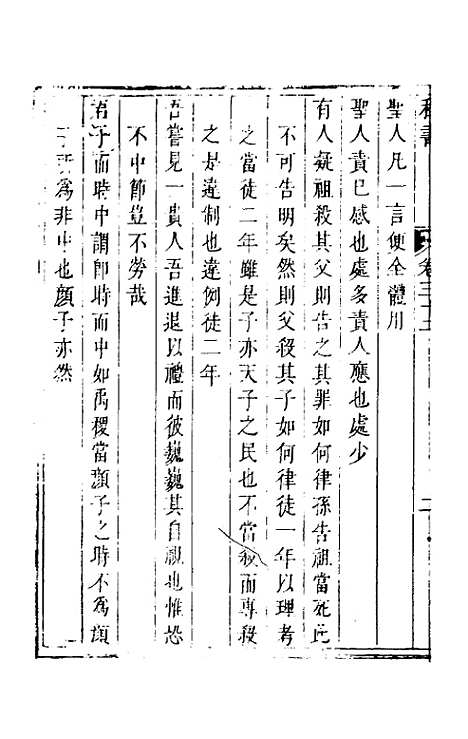 聖人凡一言便全體用
聖人責己感也處多責人應也處少
有人疑祖殺其父則告之其罪如何律孫告祖當死此
不可告明矣然則父殺其子如何律徒一年以理考
之當徒二年雖是子亦天子之民也不當殺而專殺
之是違制也違例徒二年
吾嘗見一貴人吾進退以禮而彼巍巍其自視也惟恐
不中節豈不勞哉
君子而時中謂即時而中如禹稷當顏子之時不為顏
子所為非中也顏子亦然
卷三十二
二